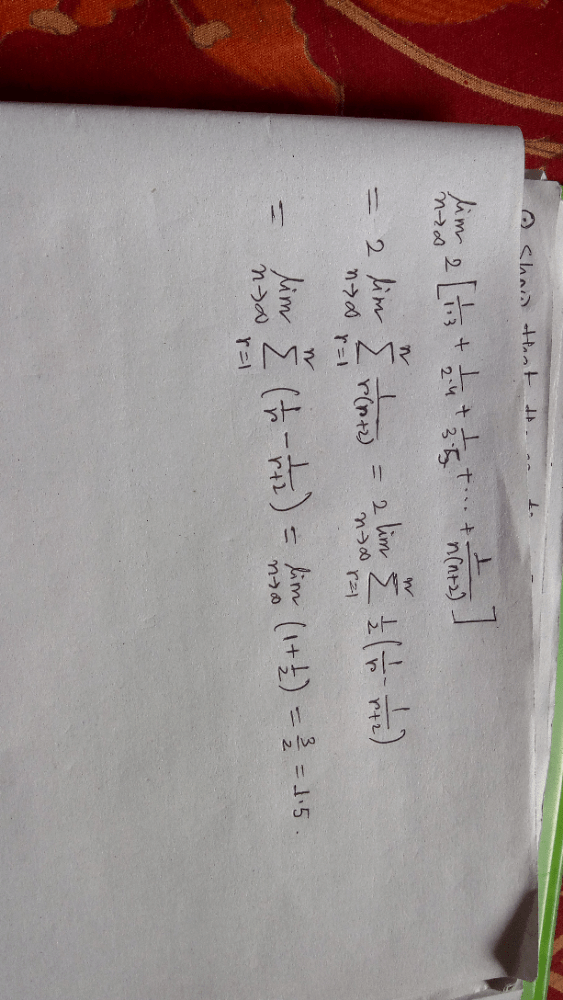 Show that
lim n→∞ 2 [ 1/1·3 + 1/2·4 + 1/3·5 + ... + 1/n(n+2) ]
= 2 lim n→∞ n Σ r=1 1/r(r+2) = 2 lim n→∞ n Σ r=1 1/2 ( 1/r - 1/r+2 )
= lim n→∞ n Σ r=1 ( 1/r - 1/r+2 ) = lim n→∞ ( 1 + 1/2 ) = 3/2 = 1.5.